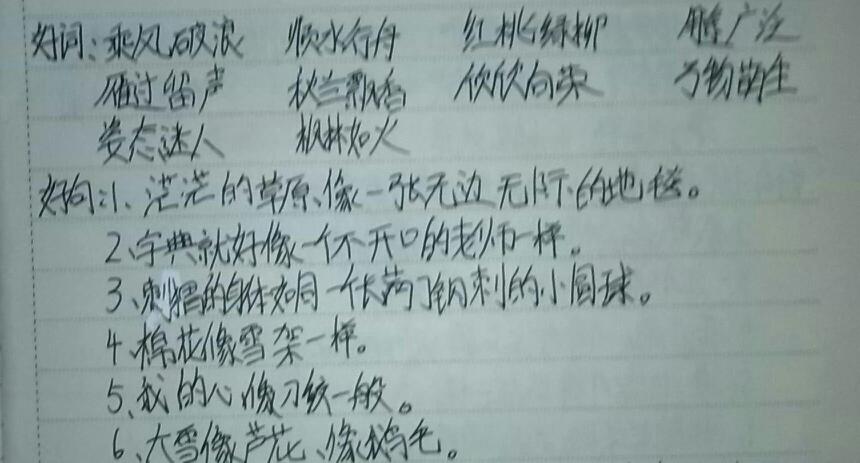 好词：乘风破浪 顺水行舟 红桃绿柳 广泛
雁过留声 秋兰飘香 欣欣向荣 万物萌生
姿态迷人 枫林如火
好句：1、茫茫的草原、像一张无边无际的地毯。
2、字典就好像一个不开口的老师一样。
3、刺猬的身体如同一个长满了钢刺的小圆球。
4、棉花像雪架一样。
5、我的心像刀绞一般。
6、大雪像芦花、像鹅毛。